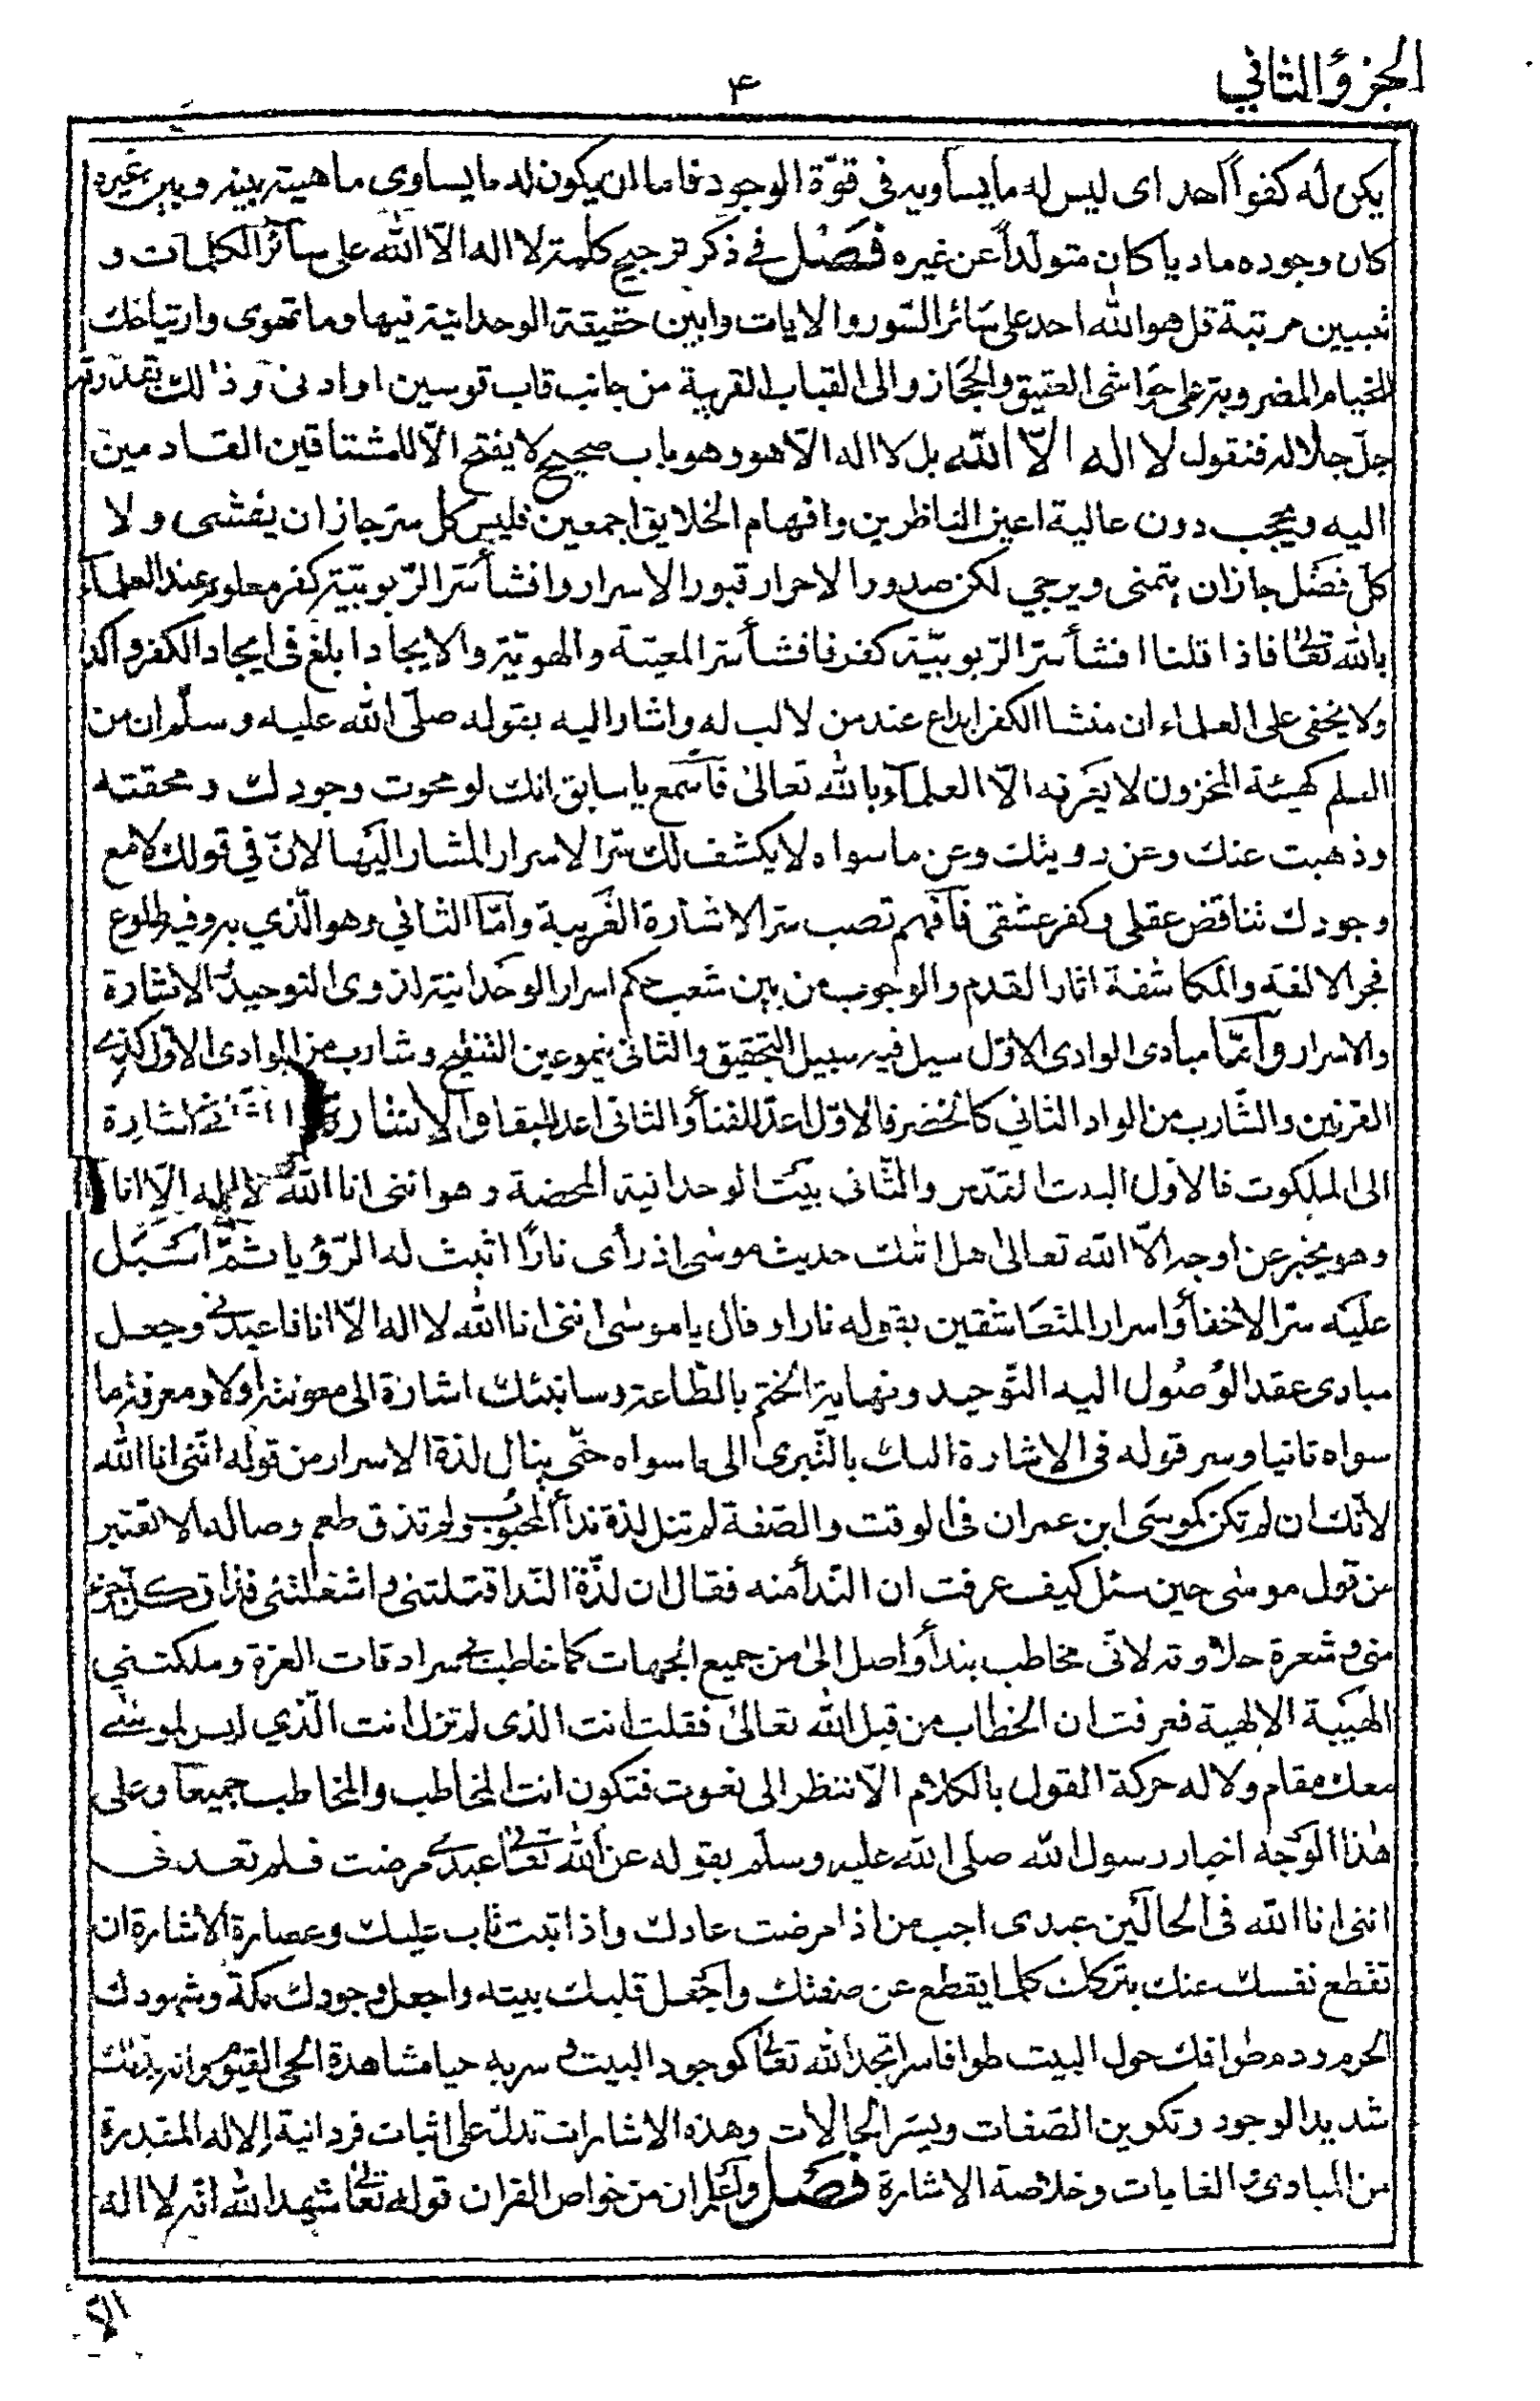 الجزؤ الثاني
٤
يكن له كفواً احد اى ليس له مايساويه فى قوّة الوجود فاما ان يكون له مايساوى ماهيته بينه وبين غيره
كان وجوده ماديا كان متولداً عن غيره فصْل فے ذكر ترجيح كلمة لا اله الّا الله على سآئر الكلمات و
تبيين مرتبة قل هو الله احد على سَائر السّور والايات وابين حقيقة الوحدانية فيها وما تهوى وارتياحك
الخيام المضروبة على حواشى العقيق والحجَاز والى القباب القريبة من جانب قاب قوسين او ادنى وذلك بقدرته
جلّ جلاله فنقول لا اله الّا الله بل لا اله الّا هو وهو باب صحيح لا يفتح الّا للمشتاقين القادمين
اليه ويحجب دون عالية اعين الناظرين وافهام الخلايق اجمعين فليس كل سرّ جاز ان يفشى ولا
كلّ فضْل جاز ان يتمنى ويرجي لكن صدور الاحرار قبور الاسرار وافشأ سرّ الرّبوبيّة كفر معلوم عند العلمآء
بالله تعالى فاذا قلنا افشأ سرّ الرّبوبيّة كفر فافشأ سرّ المعيّة والهويّة والايجاد ابلغ فى ايجاد الكفر واكد
ولا يخفى على العلماء ان منشا الكفر ابداع عند من لا لب له واشار اليه بقوله صلّى الله عليه وسلّم ان من
العلم كهيئة المخزون لا يعَرفه الّا العلمآء بالله تعالىٰ فاسمع يا سابق انك لو محوت وجودك ومحقته
وذهبت عنك وعن رويتك وعن ما سواه لا يكشف لك سرّ الاسرار المشار اليَها لانّ في قولك لا مع
وجودك تناقض عقلى وكفر عشقى فافهم تصب سرّ الاشارة الغَريبة وامّا الثاني وهو الّذي به وفيه طلوع
فجر الالفة والمكاشفة اثار القدم والوجوب من بين شعب حكم اسرار الوحَدانية از وى التوحيد الاشارة
والاسرار وآمّا مبادى الوادى الاوّل سيل فيه سبيل التحقيق والثانى ينموعين التنقيح وشارب من الوادى الاوّل كذے
القرنين والشَّارب من الواد الثاني كالخضر فالاوّل اعدّ للفنأ والثانى اعد للبقا والاشارة الثانے اشارة
الى الملكوت فالاوّل البيت المقدّس والثّانى بيَت الوحدانية المحضة وهو اننى انا الله لا اله الّا انا
وهو يخبر عن اوجد الّا الله تعالىٰ هل اتٰك حديث موسٰى اذ رأى نارًا اثبت له الرّؤيا ثمّ اسَبَل
عليَه سرّ الاخفأ واسرار المتعَاشقين بقوله نارا وقال يا موسٰى اننى انا الله لا اله الّا انا فاعبدنے وجعل
مبادى عقد الوُصُول اليه التّوحيد ونهاية الختم بالطّاعة وسانبئك اشارة الى معونته اولا ومعرفة ما
سواه ثانيا وسر قوله فى الاشارة اليك بالتّبرى الى ما سواه حتّى ينال لذة الاسرار من قوله انّنى انا الله
لانّك ان لم تكن كموسَى ابن عمران فى الوقت والصّفة لم تنل لذة ندأ المحبوُب ولم تذق طعم وصاله الا تعتبر
من قول موسٰى حين سئل كيف عرفت ان النّدأ منه فقال ان لذّة النّدا قتلتنى واشغلتنى فذا كل جزء
منى وشعرة حلاوته لانّى مخاطب بندأ واصل الىّ من جميع الجهات كما خاطبنے سرادقات العزة وملكتني
الهيَبة الالهية فعرفت ان الخطاب من قبل الله تعالىٰ فقلت انت الذى لم تزل انت الّذي ليس لموسٰے
معك مقام ولا له حركة القول بالكلام الّا ننظر الى نعوت فتكون انت المخاطب والمخاطب جميعآ وعلى
هٰذا الوَجه اخبار رسول الله صلى الله عليه وسلّم بقوله عن الله تعالٰى عبدے مرضت فلم تعدنے
اننى انا الله فى الحالَين عبدى اجب من اذا مرضت عادك واذا تبت تاب عليك وعصارة الاشارة ان
تقطع نفسك عنك بتركك كلما يقطع عن صفتك واجعَل قلبك بيته واجعل وجودك مكة وشهودك
الحرم ودم طوافك حول البيت طوافا سرا تجد الله تعالٰى كوجود البيت وسربه حيا مشاهدة الحى القيوم وانه بذلك
شديد الوجود وتكوين الصّفات ويسَر الحالات وهذه الاشارات تدلّ على اثبات فردانية الاله المقتدرة
من المبادى والغايات وخلاصة الاشارة فصْل واعلم ان من خواص القران قوله تعالٰى شهد الله انّه لا اله
الّا